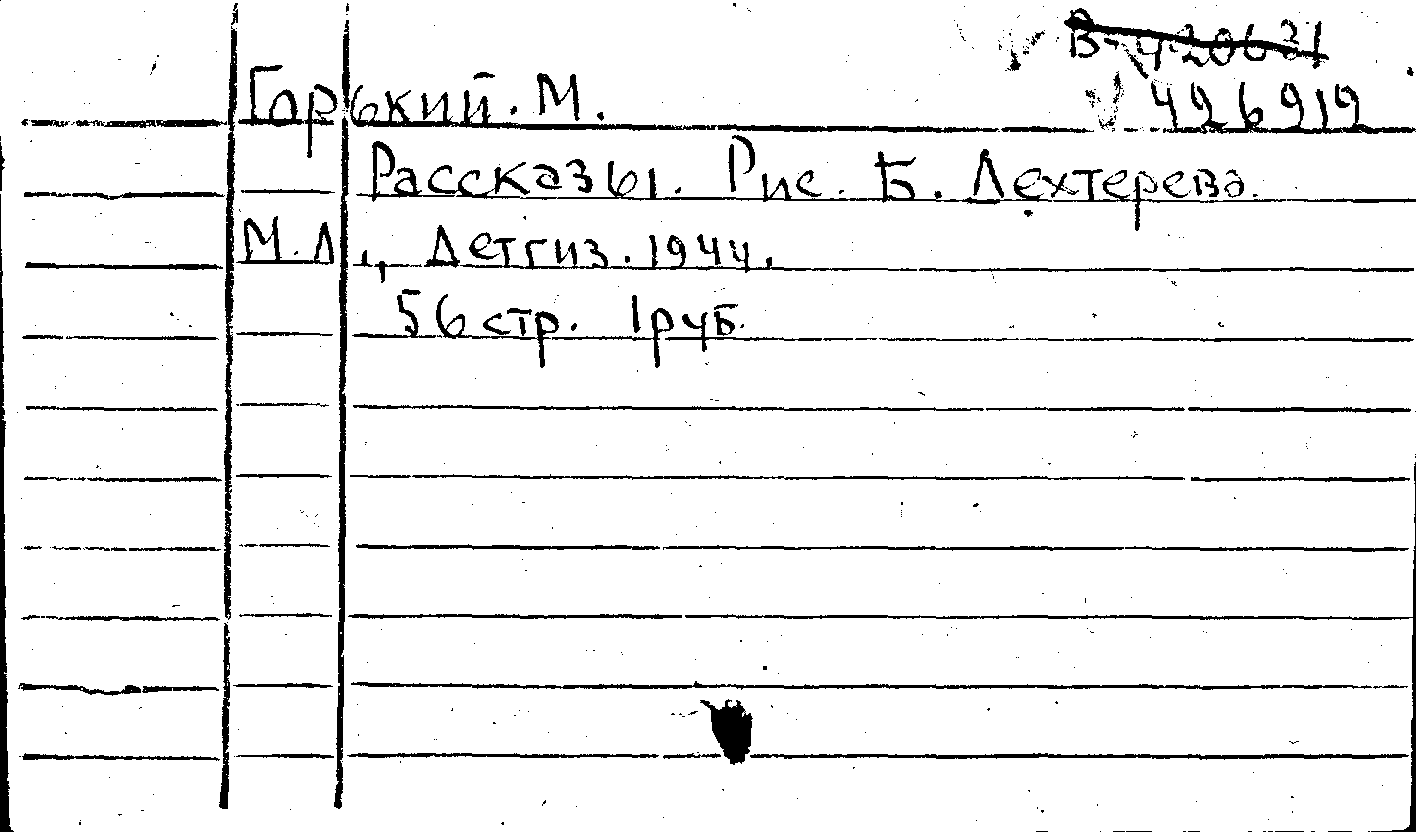 В-420631
Горький. М. 426912
Рассказы. Рис. Б. Дехтерева.
М.Л., Детгиз. 1944.
56 стр. 1 руб.